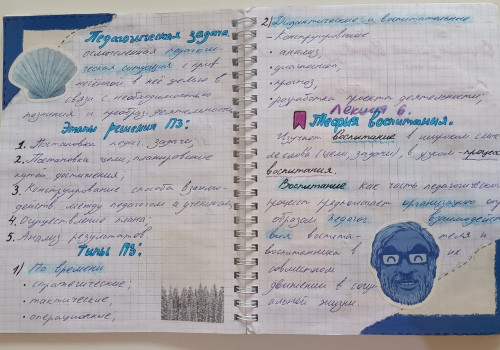 Педагогическая задача,
осмысленная педагоги-
ческая ситуация с прив
несённой в неё целью в
связи с необходимостью
познания и преобраз. деятельности
Этапы решения ПЗ:
1. Постановка педаг. задачи,
2. Постановка цели, планирование
путей достижения;
3. Конструирование способа взаимо-
действ. между педагогом и учениками,
4. Осуществление плана;
5. Анализ результатов
Типы ПЗ:
1) По времени
• стратегические;
• тактические,
• операционные,
2) Дидактические и воспитательные
- Конструирование
• анализ,
• диагностика,
• прогноз,
разработка проекта деятельности,
Лекция 6.
Теория воспитания.
Изучает воспитание в широком
смысле слова (цели, задачи), в узком - процесс
воспитания.
Воспитание как часть педагогическ
процесс предполагает организацию
образом педагог. взаимодейст
вия воспита- теля и
воспитанника в их
совместном
движении в соци
альной жизни.